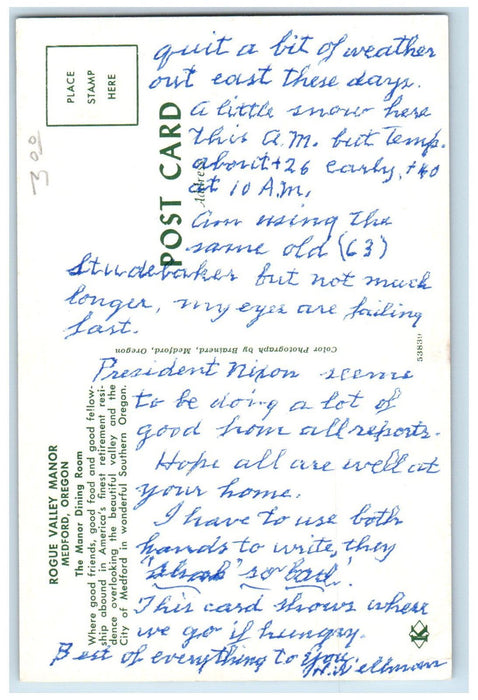 quit a bit of weather
out east these days.
A little snow here
this A.M. but Temp.
about +26 early, +40
at 10 A.M.
Am using the
same old (63)
Studebaker but not much
longer, my eyes are failing
fast.
President Nixon seems
to be doing a lot of
good from all reports.
Hope all are well at
your home.
I have to use both
hands to write, they
"shak" so bad.
This card shows where
we go if hungry.
Best of everything to you
PLACE
STAMP
HERE
3 00
POST CARD
Address
Color Photograph by Brainerd, Medford, Oregon
53839
ROGUE VALLEY MANOR
MEDFORD, OREGON
The Manor Dining Room
Where good friends, good food and good fellow-
ship abound in America's finest retirement resi-
dence overlooking the beautiful valley and the
City of Medford in wonderful Southern Oregon.
K